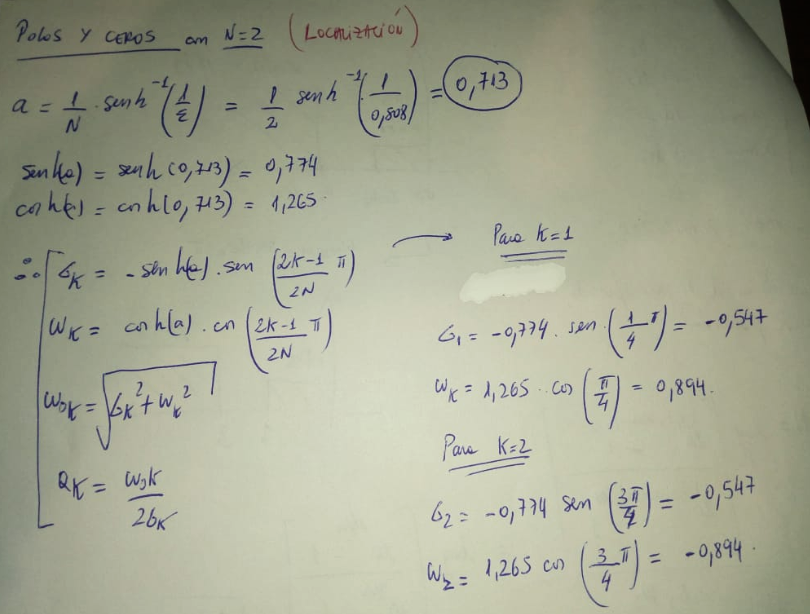 Polos y ceros con N=2 (Localización)
a = 1/N · senh⁻¹(1/ε) = 1/2 senh⁻¹(1/0,508) = 0,713
senh(a) = senh(0,713) = 0,774
cosh(a) = cosh(0,713) = 1,265
∴ σK = -senh(a) · sen (2K-1/2N π)
ωK = cosh(a) · cos (2K-1/2N π)
ω0K = √(σK² + ωK²)
QK = ω0K/2σK
→ Para K=1
σ1 = -0,774 · sen · (1/4 π) = -0,547
ωK = 1,265 · cos (π/4) = 0,894.
Para K=2
σ2 = -0,774 sen (3π/4) = -0,547
ω2 = 1,265 cos (3/4 π) = -0,894.